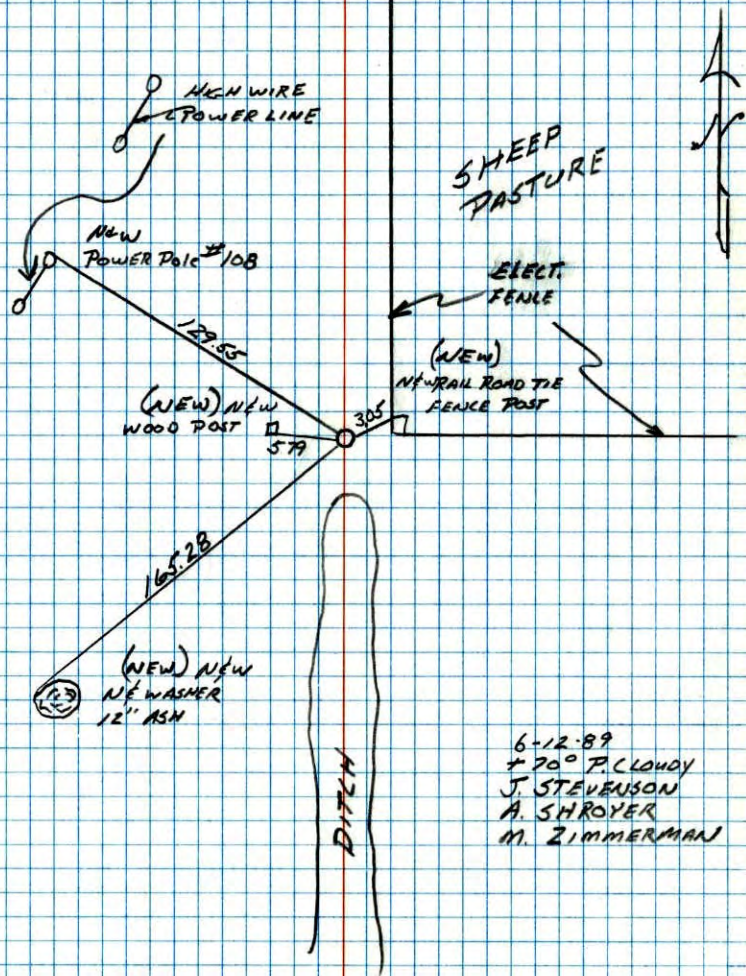 HIGH WIRE
POWER LINE
SHEEP
PASTURE
N&W
POWER POLE #108
ELECT.
FENCE
129.55
(NEW)
N&W RAIL ROAD TIE
FENCE POST
(NEW) N&W
WOOD POST
3.05
5.79
165.28
(NEW) N&W
N& WASHER
12" ASH
DITCH
6-12-89
+70° P. CLOUDY
J. STEVENSON
A. SHROYER
M. ZIMMERMAN